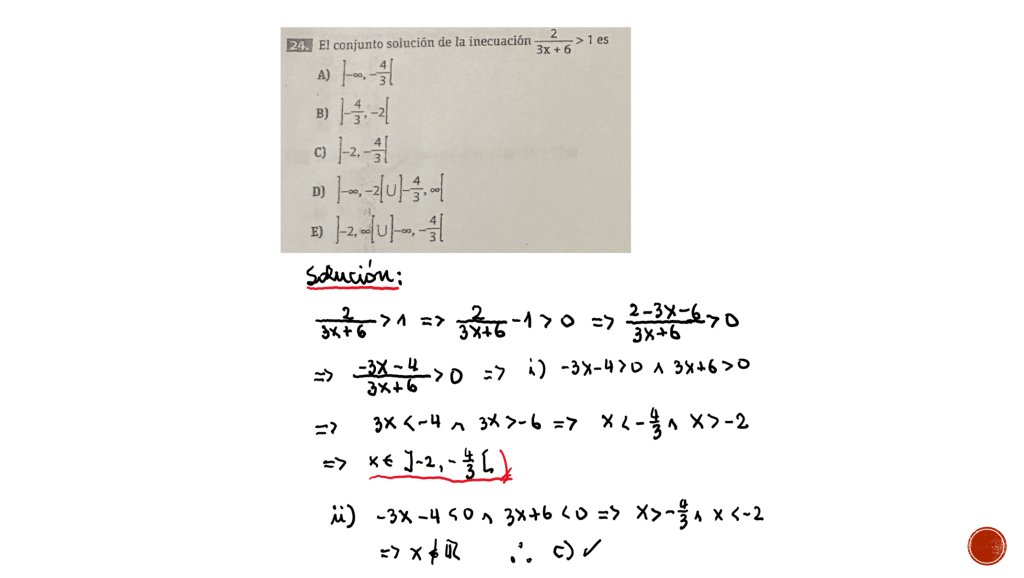 24. El conjunto solución de la inecuación 2/(3x + 6) > 1 es
A) ]-∞, -4/3[
B) ]-4/3, -2[
C) ]-2, -4/3[
D) ]-∞, -2[ ∪ ]-4/3, ∞[
E) ]-2, ∞[ ∪ ]-∞, -4/3[
Solución:
2/(3x+6) > 1 => 2/(3x+6) - 1 > 0 => (2-3x-6)/(3x+6) > 0
=> (-3x-4)/(3x+6) > 0 => i) -3x-4>0 ∧ 3x+6>0
=> 3x < -4 ∧ 3x > -6 => x < -4/3 ∧ x > -2
=> x ∈ ]-2, -4/3[
ii) -3x-4<0 ∧ 3x+6<0 => x > -4/3 ∧ x < -2
=> x ∉ ℝ ∴ C) ✓